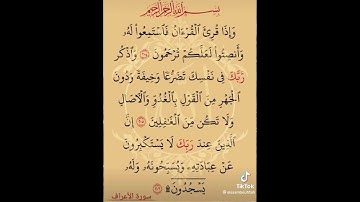 بسم الله الرحمن الرحيم
وَإِذَا قُرِئَ ٱلۡقُرۡءَانُ فَٱسۡتَمِعُواْ لَهُۥ
وَأَنصِتُواْ لَعَلَّكُمۡ تُرۡحَمُونَ ٢٠٤ وَٱذۡكُر
رَّبَّكَ فِي نَفۡسِكَ تَضَرُّعٗا وَخِيفَةٗ وَدُونَ
ٱلۡجَهۡرِ مِنَ ٱلۡقَوۡلِ بِٱلۡغُدُوِّ وَٱلۡأٓصَالِ
وَلَا تَكُن مِّنَ ٱلۡغَٰفِلِينَ ٢٠٥ إِنَّ
ٱلَّذِينَ عِندَ رَبِّكَ لَا يَسۡتَكۡبِرُونَ
عَنۡ عِبَادَتِهِۦ وَيُسَبِّحُونَهُۥ وَلَهُۥ
يَسۡجُدُونَ۩ ٢٠٦
سورة الأعراف
TikTok